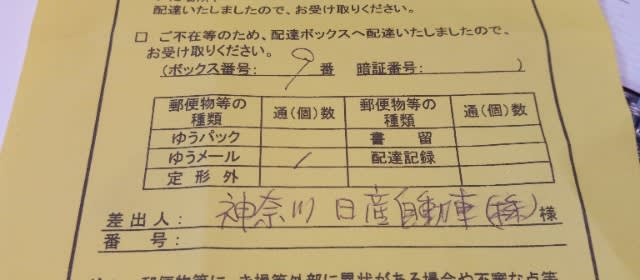 配達いたしましたので、お受け取りください。
□ ご不在等のため、配達ボックスへ配達いたしましたので、
お受け取りください。
(ボックス番号: 9 番 暗証番号: )
郵便物等の種類 通(個)数 郵便物等の種類 通(個)数
ゆうパック 書留
ゆうメール / 配達記録
定形外
差出人: 神奈川日産自動車(株)様
番号: